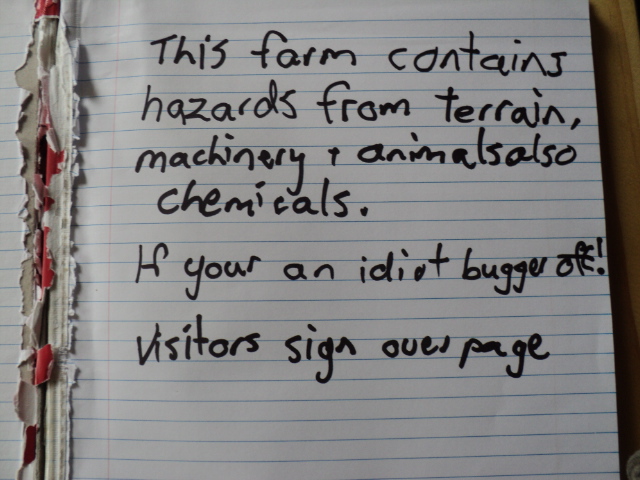 This farm contains
hazards from terrain,
machinery + animals also
chemicals.
If your an idiot bugger off!
Visitors sign over page